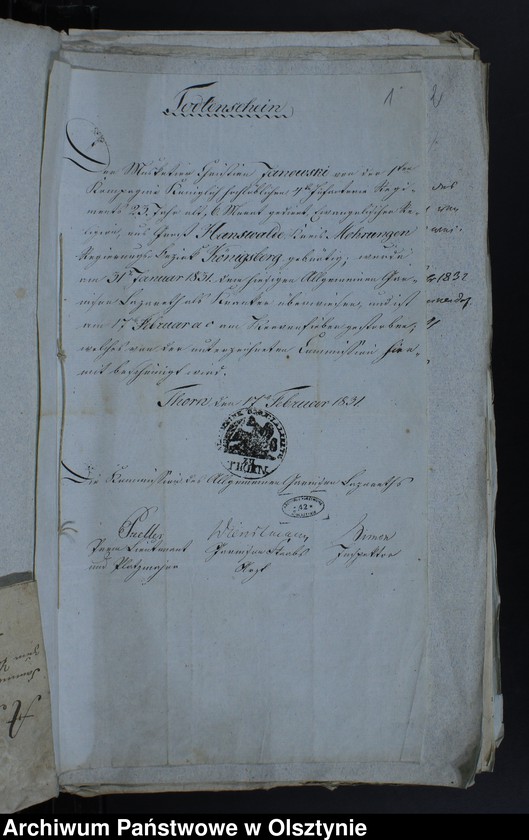 1
2
Todtenschein
Der Musketier Christian Janowski von der 1ten
Kompagnie Königlich hochlöblichen 4ten Infanterie Regi-
ments 23. Jahr alt, 6 Monat gedient, Evangelischer Re-
ligion, aus Hanswalde Kreis Mohrungen
Regierungs-Bezirk Königsberg gebürtig, wurde
am 31t Januar 1831. dem hiesigen Allgemeinen Gar-
nison Lazareth als Kranker überwiesen, und ist
am 17t Februar a c am Nervenfieber gestorben,
welches von der unterzeichneten Commission hier-
mit bescheinigt wird.
Thorn den 17t Februar 1831.
THORN
Die Kommission des Allgemeinen Garnison Lazareths
42
Lieutenant Garnison Stabs Inspektor
und Platzmajor Arzt
1832
Archiwum Państwowe w Olsztynie